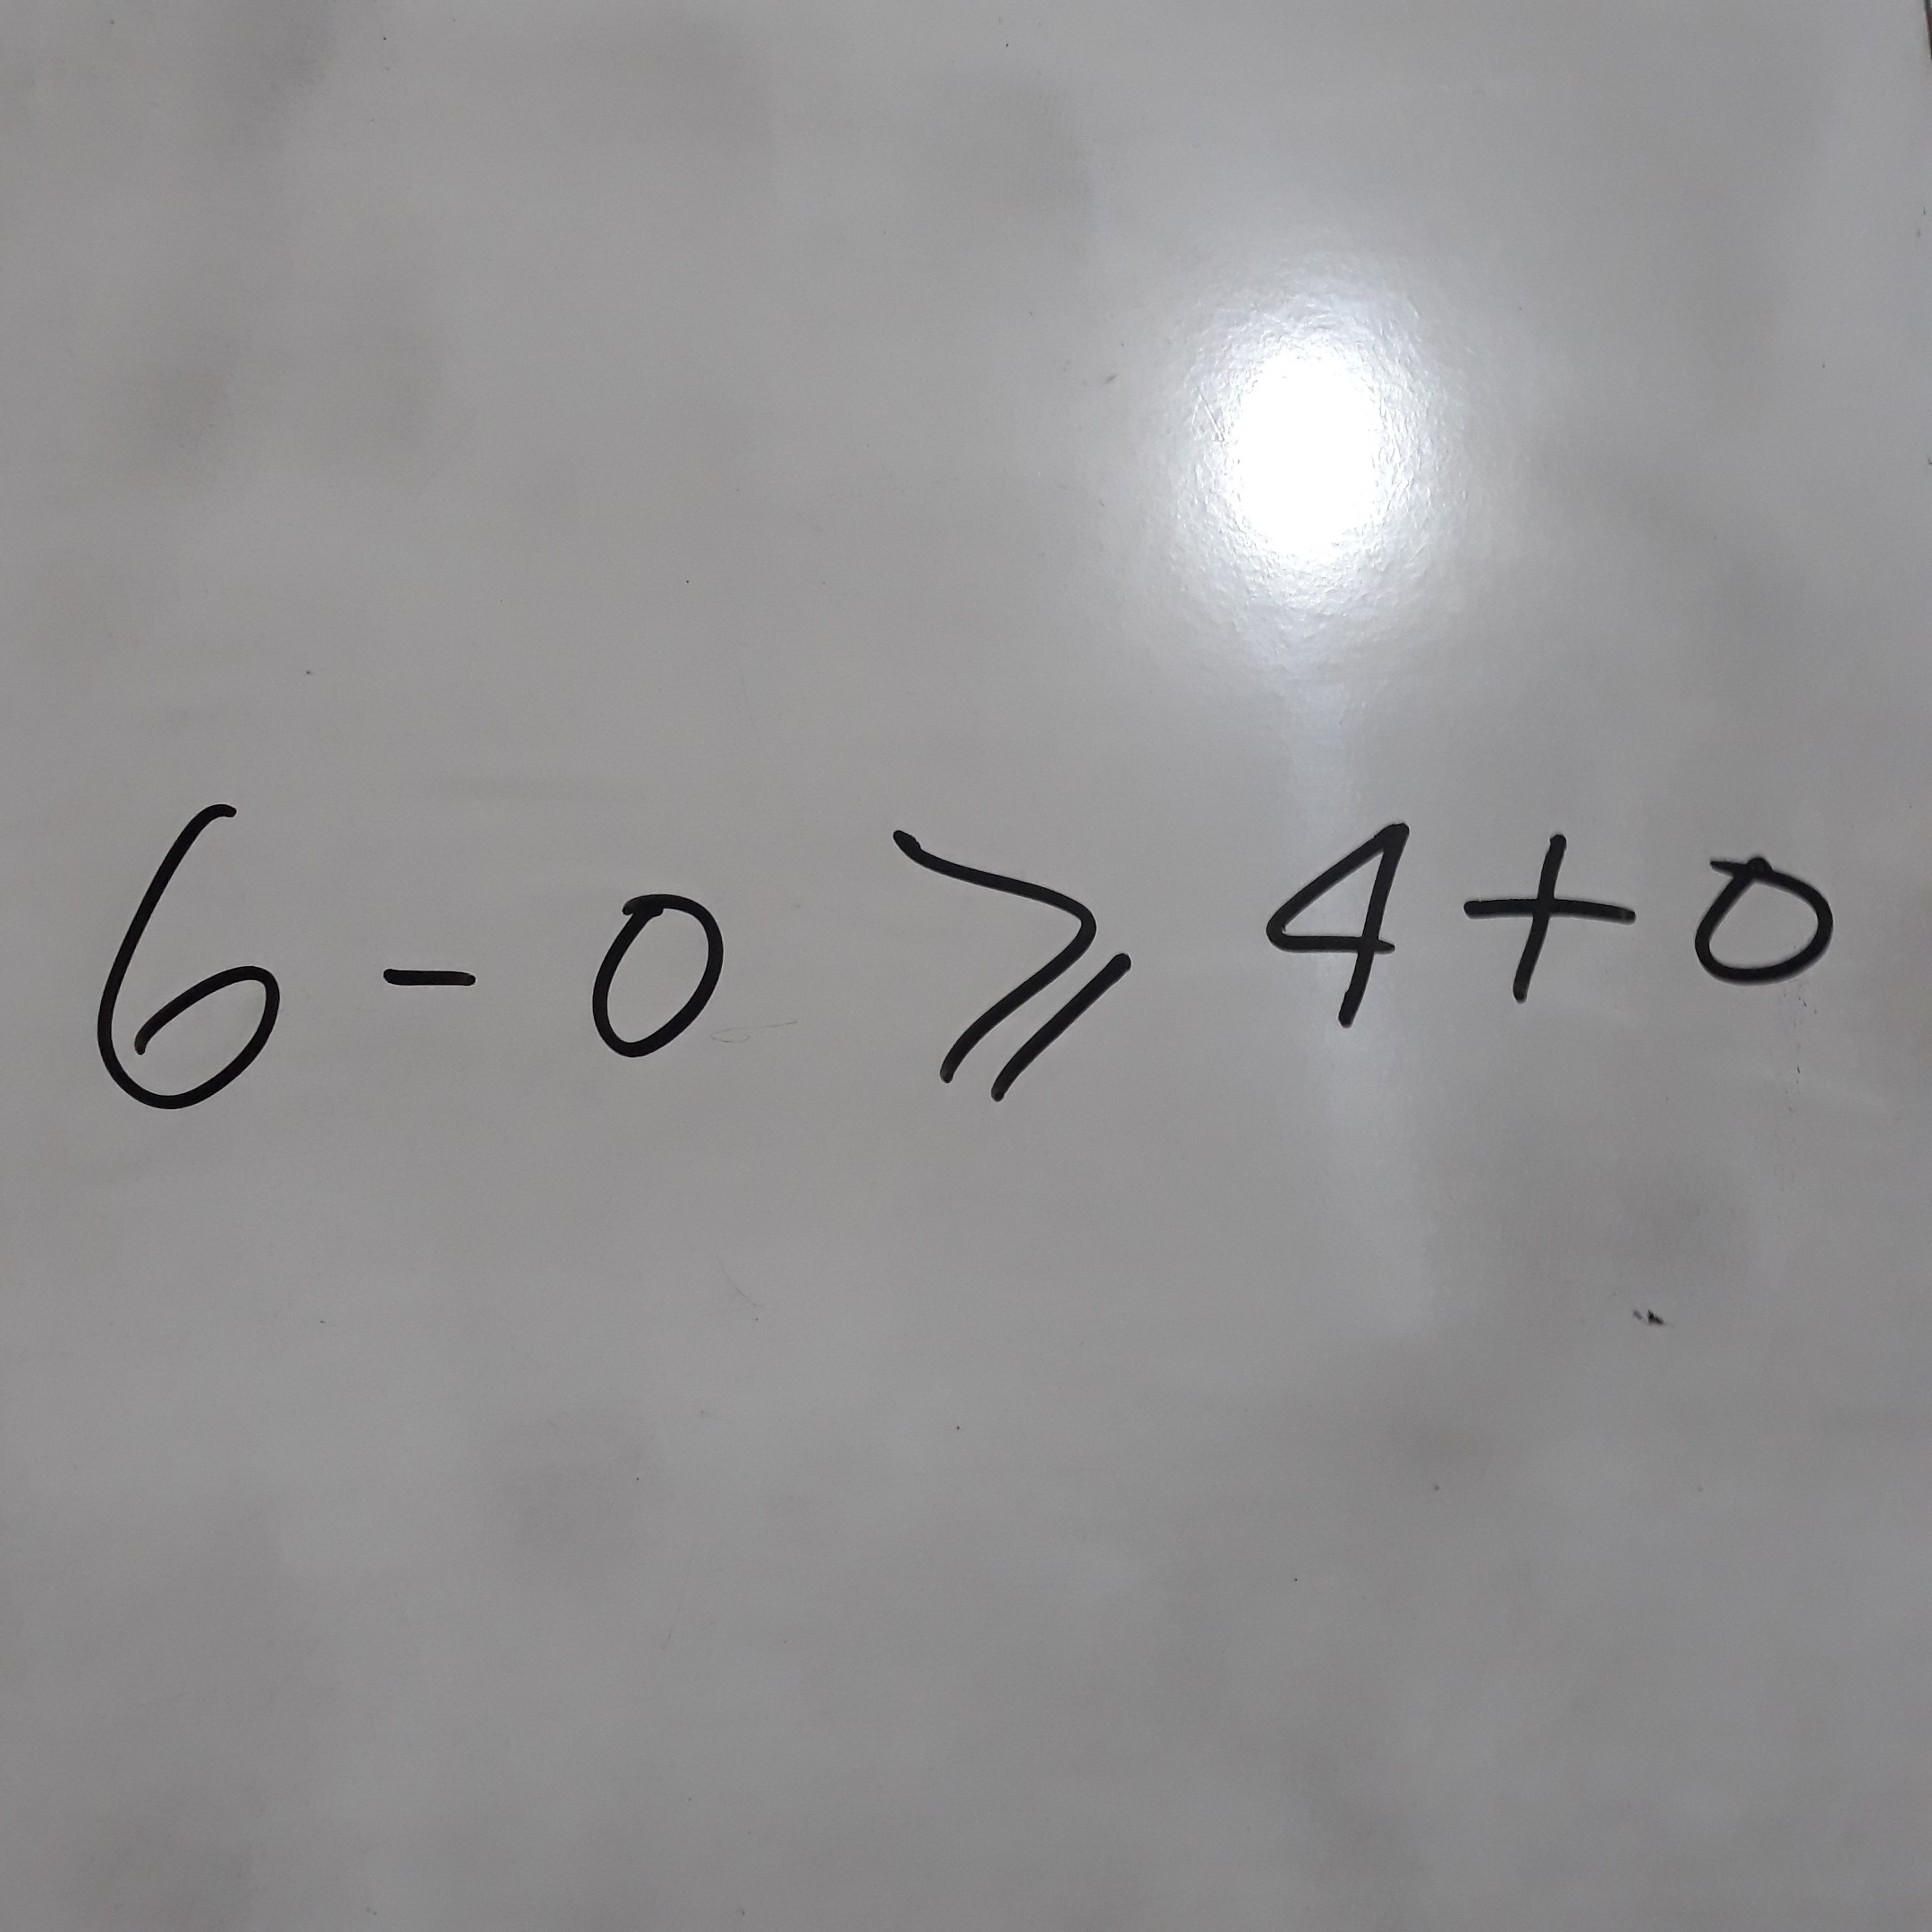 6 - 0 ⩾ 4 + 0